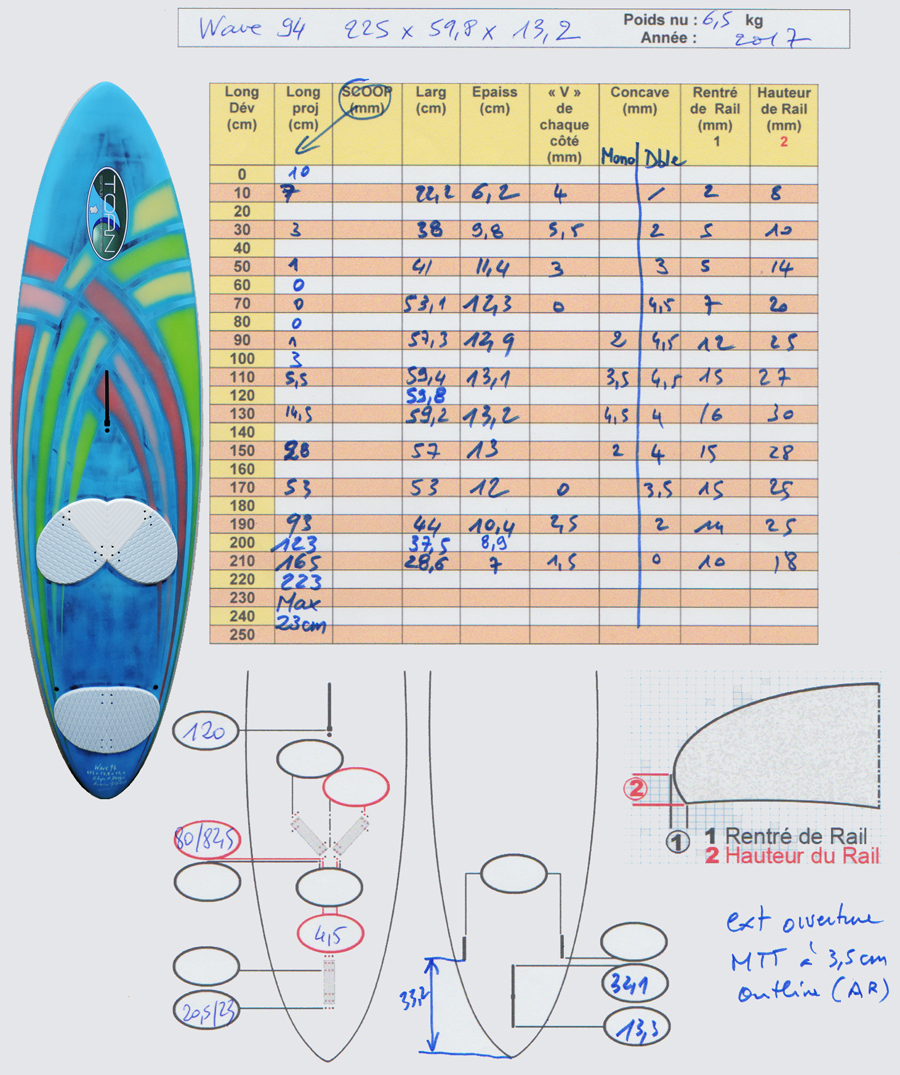 Wave 94 225 x 59,8 x 13,2 Poids nu : 6,5 kg
Année : 2017
Long Dév (cm) Long proj (cm) SCOOP (mm) Larg (cm) Epaiss (cm) « V » de chaque côté (mm) Concave (mm) Rentré de Rail (mm) 1 Hauteur de Rail (mm) 2
Mono Dble
0 10
10 7 22,2 6,2 4 / 2 8
20
30 3 38 9,8 5,5 2 5 10
40
50 1 41 11,4 3 3 5 14
60 0
70 0 53,1 12,3 0 4,5 7 20
80 0
90 1 57,3 12,9 2 4,5 12 25
100 3
110 5,5 59,4 13,1 3,5 4,5 15 27
120 59,8
130 14,5 59,2 13,2 4,5 4 16 30
140
150 28 57 13 2 4 15 28
160
170 53 53 12 0 3,5 15 25
180
190 93 44 10,4 2,5 2 14 25
200 123 37,5 8,9
210 165 28,6 7 1,5 0 10 18
220 223
230 Max
240 23cm
250
120
80/82,5
4,5
20,5/23
33,2
34,1
13,3
2
1
1 Rentré de Rail
2 Hauteur du Rail
ext ouverture
MTT à 3,5cm
outline (AR)
Wave 94